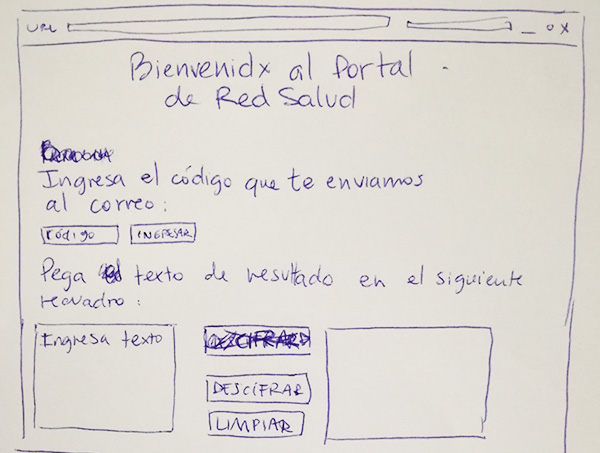 URL _ o x
Bienvenidx al Portal
de Red Salud
Ingresa el código que te enviamos
al correo:
código INGRESAR
Pega el texto de resultado en el siguiente
recuadro:
Ingresa texto
DESCIFRAR
LIMPIAR